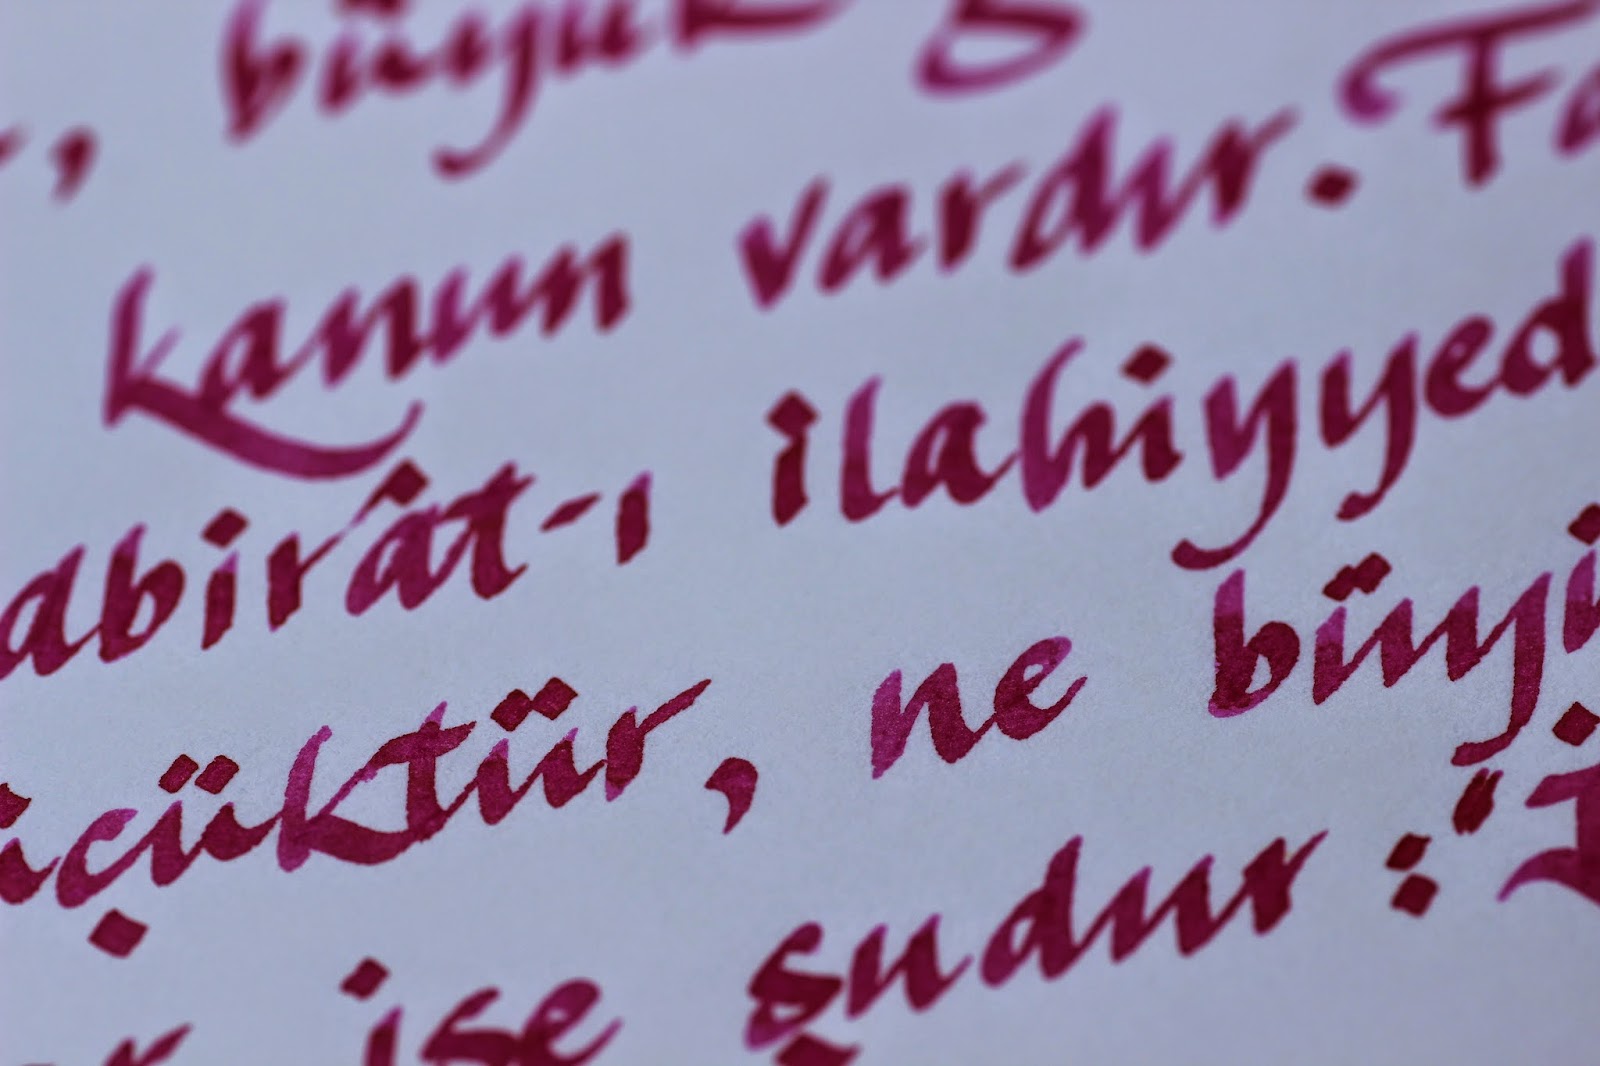 , büyük
kanun vardır. Fa
abirât-ı ilahiyyed
üçüktür, ne büyü
ise şudur : "İ